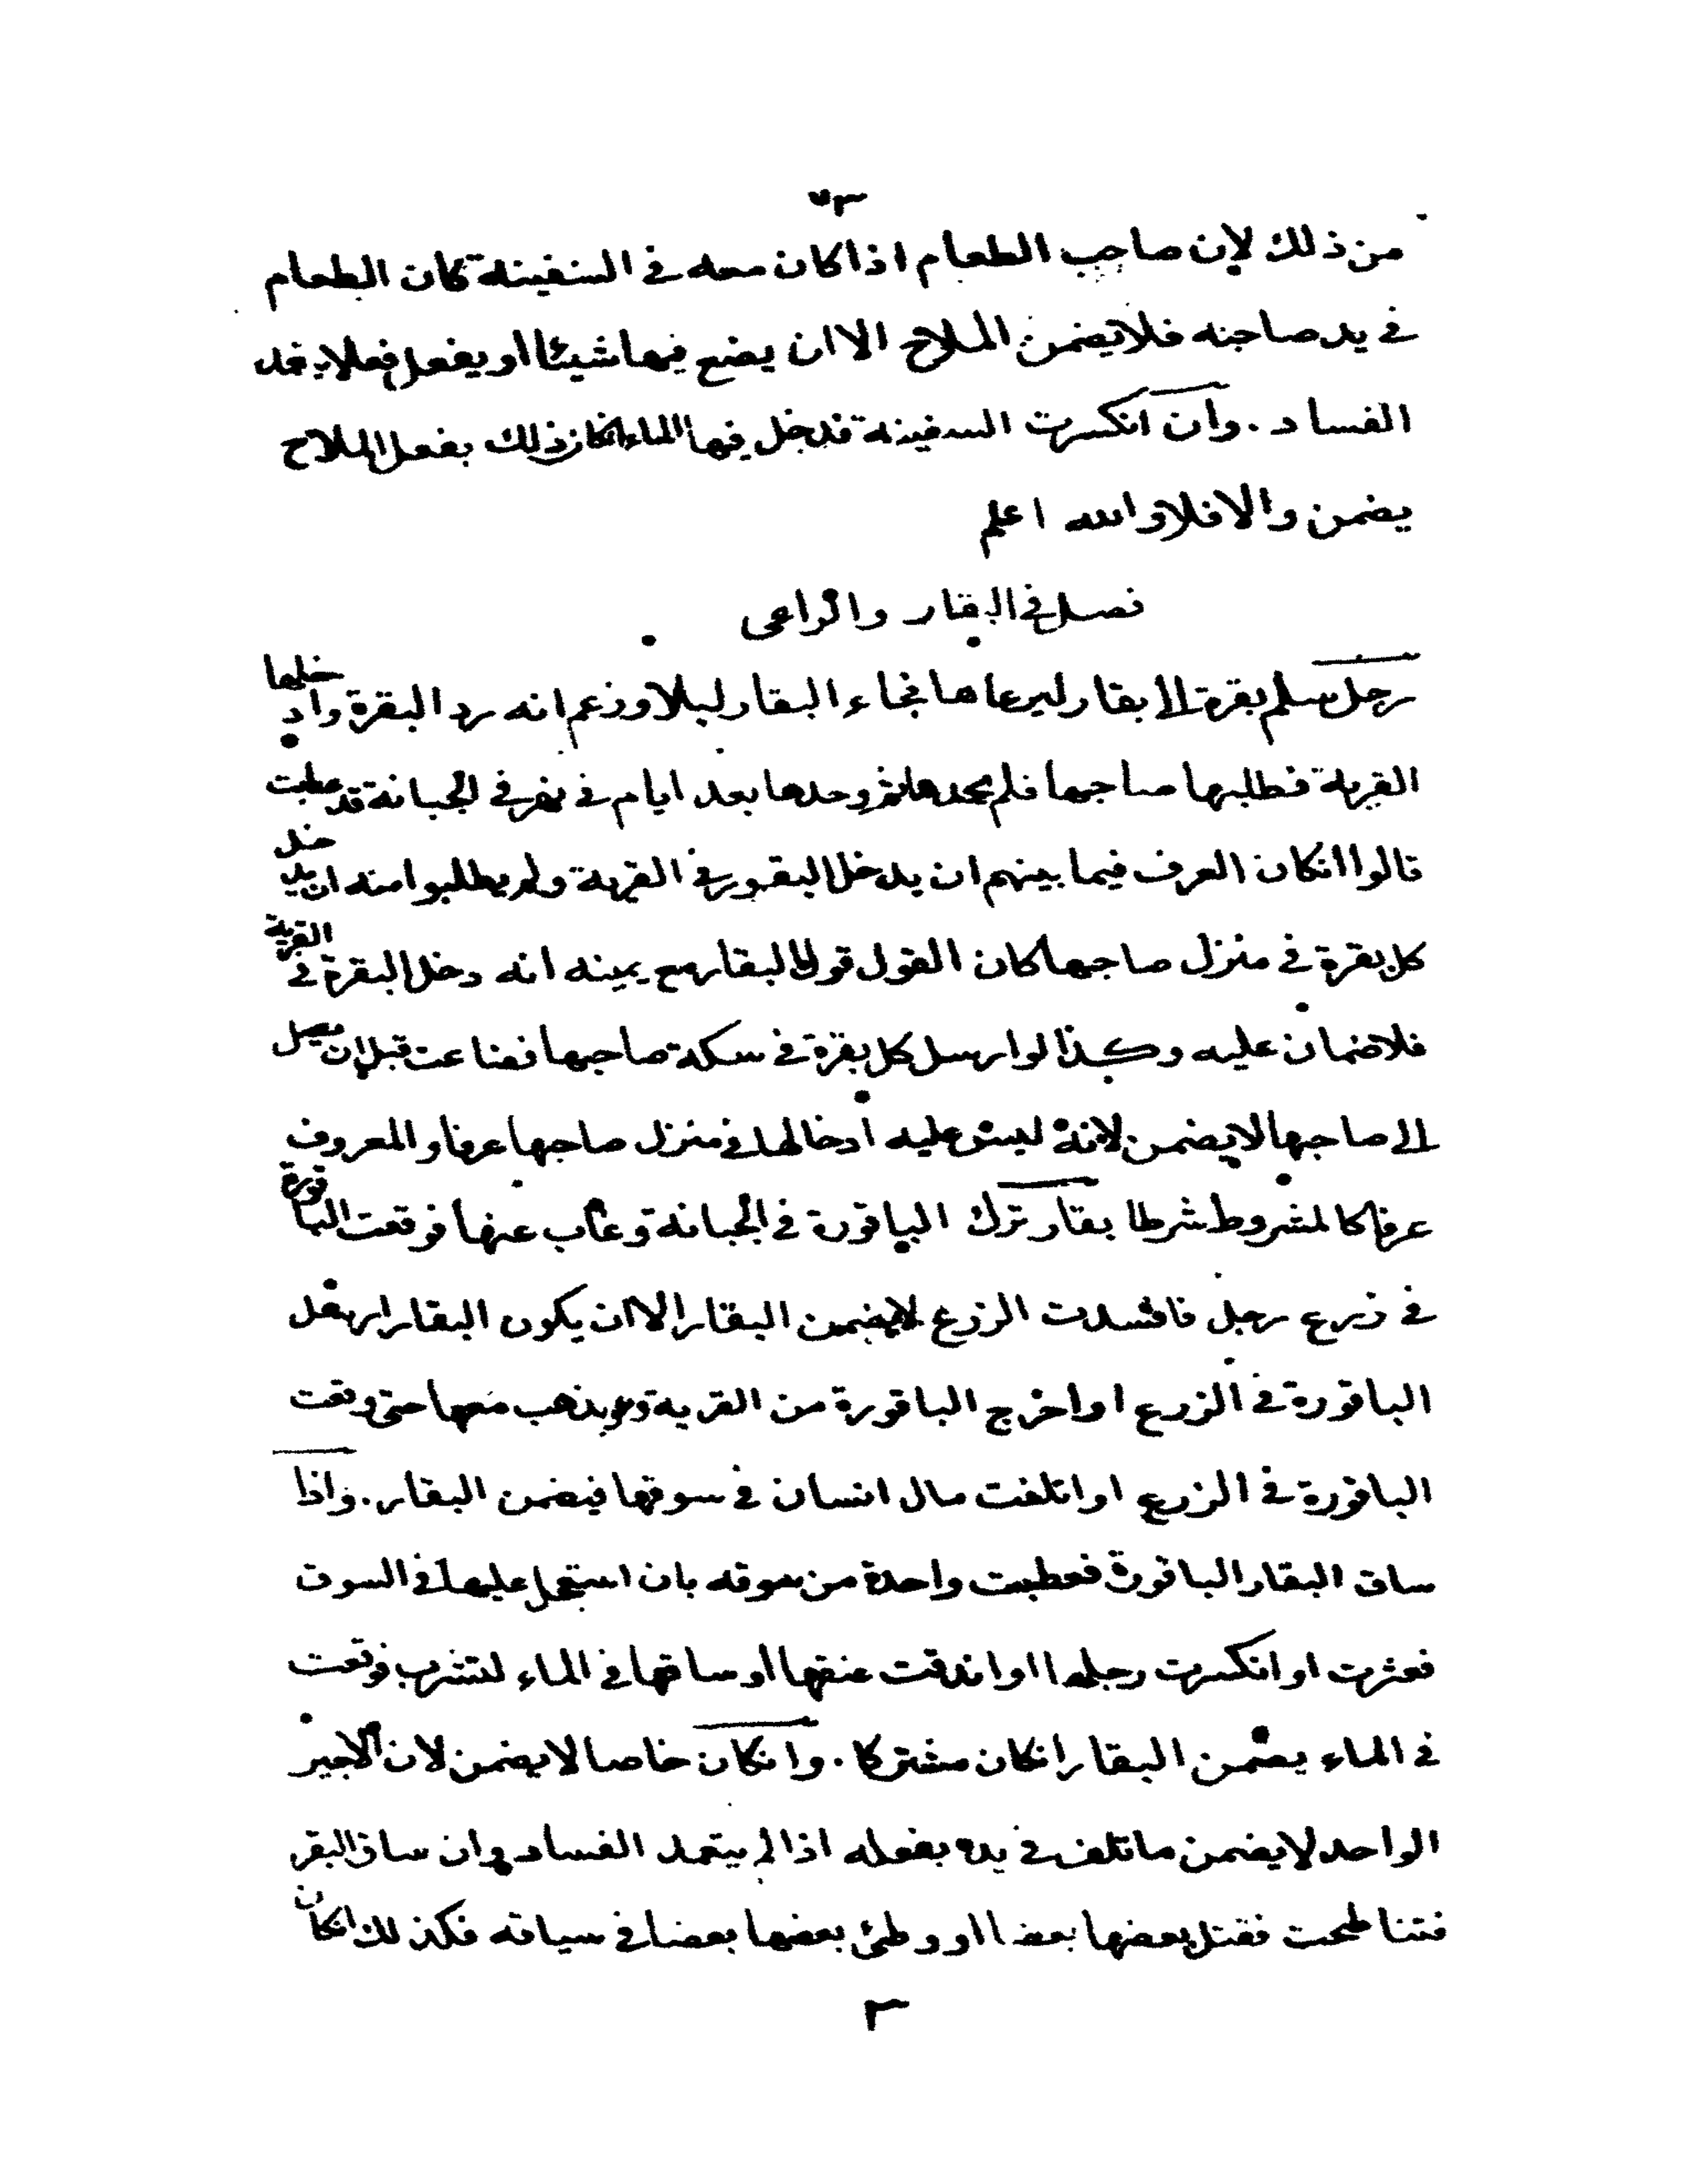 ٣
من ذلك لان صاحب الطعام اذا كان معه في السفينة كان الطعام
في يد صاحبه فلا يضمن الملاح الا ان يضع فيها شيئا او يفعل فعلا يتعمد
الفساد. وان انكسرت السفينة فدخل فيها الماء انكان ذلك بفعل الملاح
يضمن والا فلا والله اعلم
فصل في البقار والراعي
رجل سلم بقرة الى بقار ليرعاها فجاء البقار ليلا وزعم انه رد البقرة وادخلها
القرية فطلبها صاحبها فلم يجدها ثم وجدها بعد ايام في نهر في الجبانة قد عطبت
قالوا انكان العرف فيما بينهم ان يدخل البقور في القرية ولم يطلبوا منه ان يدخل
كل بقرة في منزل صاحبها كان القول قول البقار مع يمينه انه دخل البقرة في القرية
فلا ضمان عليه وكذا لو ارسل كل بقرة في سكة صاحبها فضاعت قبل ان تصل
الى صاحبها لا يضمن لانه ليس عليه ادخالها في منزل صاحبها عرفا والمعروف
عرفا كالمشروط شرطا بقار ترك الباقورة في الجبانة وغاب عنها فوقعت الباقورة
في زرع رجل فافسدت الزرع لا يضمن البقار الا ان يكون البقار ارسل
الباقورة في الزرع او اخرج الباقورة من القرية وهو يذهب معها حتى وقعت
الباقورة في الزرع او اتلفت مال انسان في سوقها فيضمن البقار. واذا
ساق البقار الباقورة فعطبت واحدة من سوقه بان استعجل عليها في السوق
فعثرت او انكسرت رجلها او اندقت عنقها او ساقها في الماء لتشرب فوقعت
في الماء يضمن البقار انكان مشتركا. وانكان خاصا لا يضمن لان الاجير
الواحد لا يضمن ما تلف في يده بفعله اذا لم يتعمد الفساد وان ساق البقر
فتناطحت فقتل بعضها بعضا او وطئ بعضها بعضا في سياقه فكذلك انكان
٣